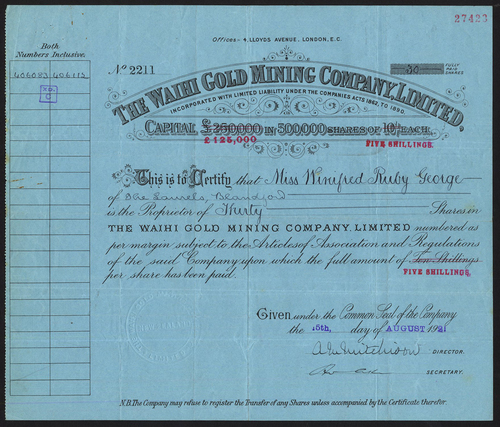 27423
Offices - 4, LLOYDS AVENUE, LONDON, E.C.
Both
Numbers Inclusive.
406083 406112
No 2211
30 FULLY PAID SHARES
THE WAIHI GOLD MINING COMPANY, LIMITED,
INCORPORATED WITH LIMITED LIABILITY UNDER THE COMPANIES ACTS 1862, TO 1890.
CAPITAL £250,000 IN 500,000 SHARES OF 10/- EACH.
£125,000 FIVE SHILLINGS.
This is to Certify that Miss Winifred Ruby George
of The Laurels, Blandford
is the Proprietor of Thirty Shares in
THE WAIHI GOLD MINING COMPANY, LIMITED numbered as
per margin subject to the Articles of Association and Regulations
of the said Company upon which the full amount of Ten Shillings
per share has been paid. FIVE SHILLINGS.
Given under the Common Seal of the Company
the 15th, day of AUGUST 1921
DIRECTOR.
SECRETARY.
N.B. The Company may refuse to register the Transfer of any Shares unless accompanied by the Certificate therefor.